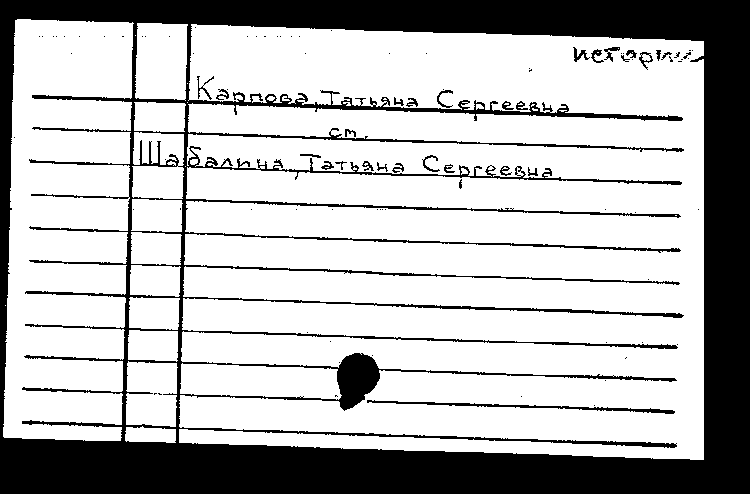 истории
Карпова, Татьяна Сергеевна
см.
Шабалина, Татьяна Сергеевна